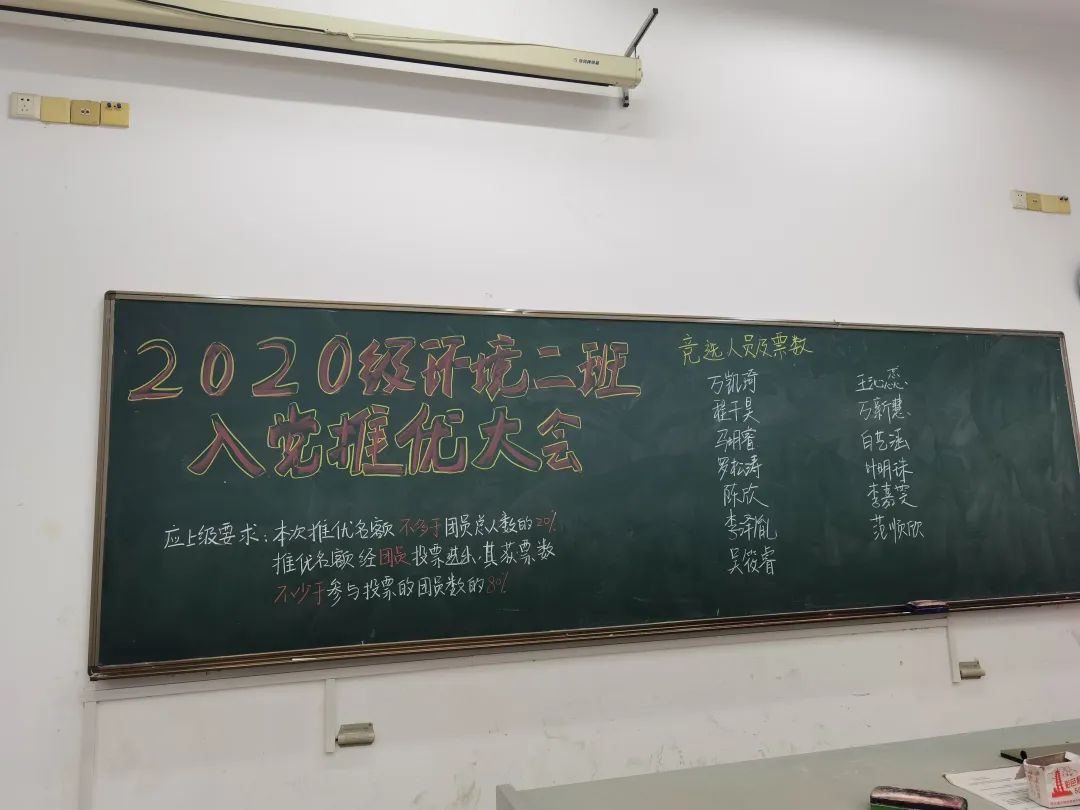 2020级环境二班
入党推优大会
应上级要求：本次推优名额不多于团员总人数的20%
推优名额经团员投票选出，其获票数
不少于参与投票的团员数的80%
竞选人员及票数
万凯琦
程千昊
马玥睿
罗松涛
陈欣
李泽胤
吴筱睿
王沁蕊
万新慧
白艺涵
叶明珠
李嘉雯
范顺欣